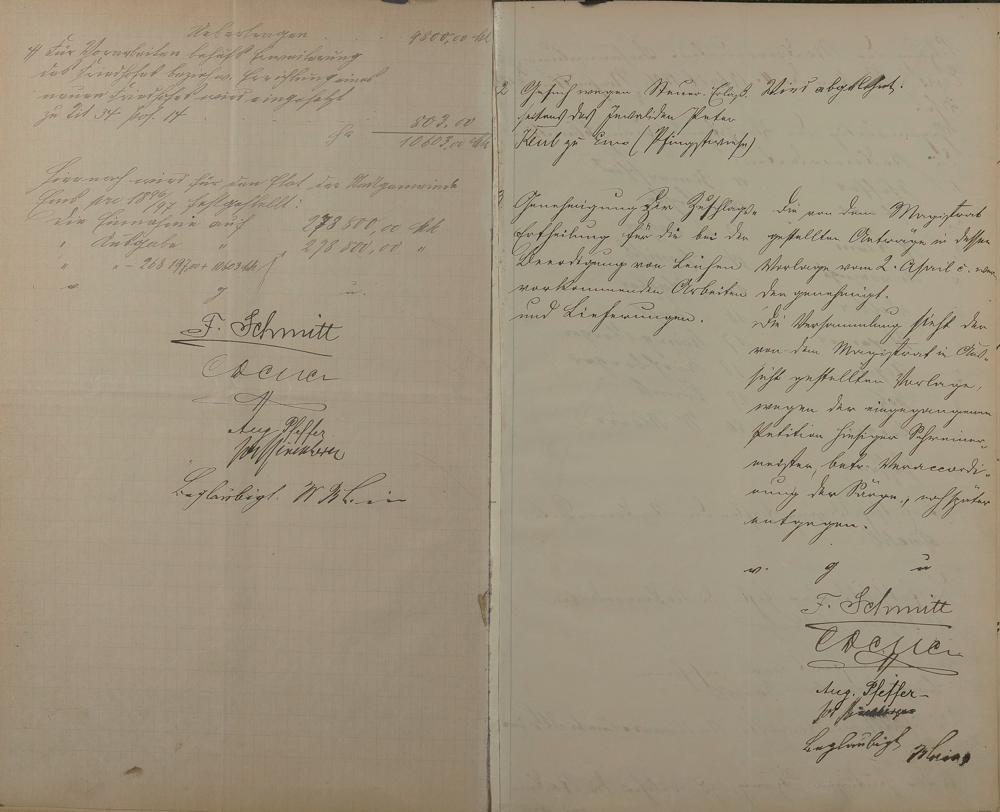 Uebertragen 9800,00 Mk
4) Für Vorarbeiten behufs Erweiterung
des Friedhofs beziehw. Errichtung eines
neuen Friedhofes wird eingesetzt
zu Tit 34 pos. 14 803,00
Sa 10603,00 Mk
Hiernach wird für den Etat der Stadtgemeinde
Ems pro 1896/97 festgestellt:
die Einnahme auf 278 800,00 Mk
" Ausgabe " 278,800,00 "
" " = 268 197,00 + 10603 Mk
v. g. u.
F. Schmitt
Aug. Pfeffer
Beglaubigt.
2 Gesuch wegen Steuer-Erlaß
seitens des Invaliden Peter
Keul zu Ems (Pfingstwiese)
Wird abgelehnt.
3 Genehmigung zur Zuschlags-
Ertheilung für die bei der
Beerdigung von Leichen
vorkommenden Arbeiten
und Lieferungen.
Die von dem Magistrat
gestellten Anträge in dessen
Vorlage vom 2. April c. wer-
den genehmigt.
Die Versammlung sieht der
von dem Magistrat in Aus-
sicht gestellten Vorlage,
wegen der eingegangenen
Petition hiesiger Schreiner-
meister, betr. Veraccordi-
rung der Särge, noch später
entgegen.
v. g u
F. Schmitt
Aug. Pfeffer
Beglaubigt